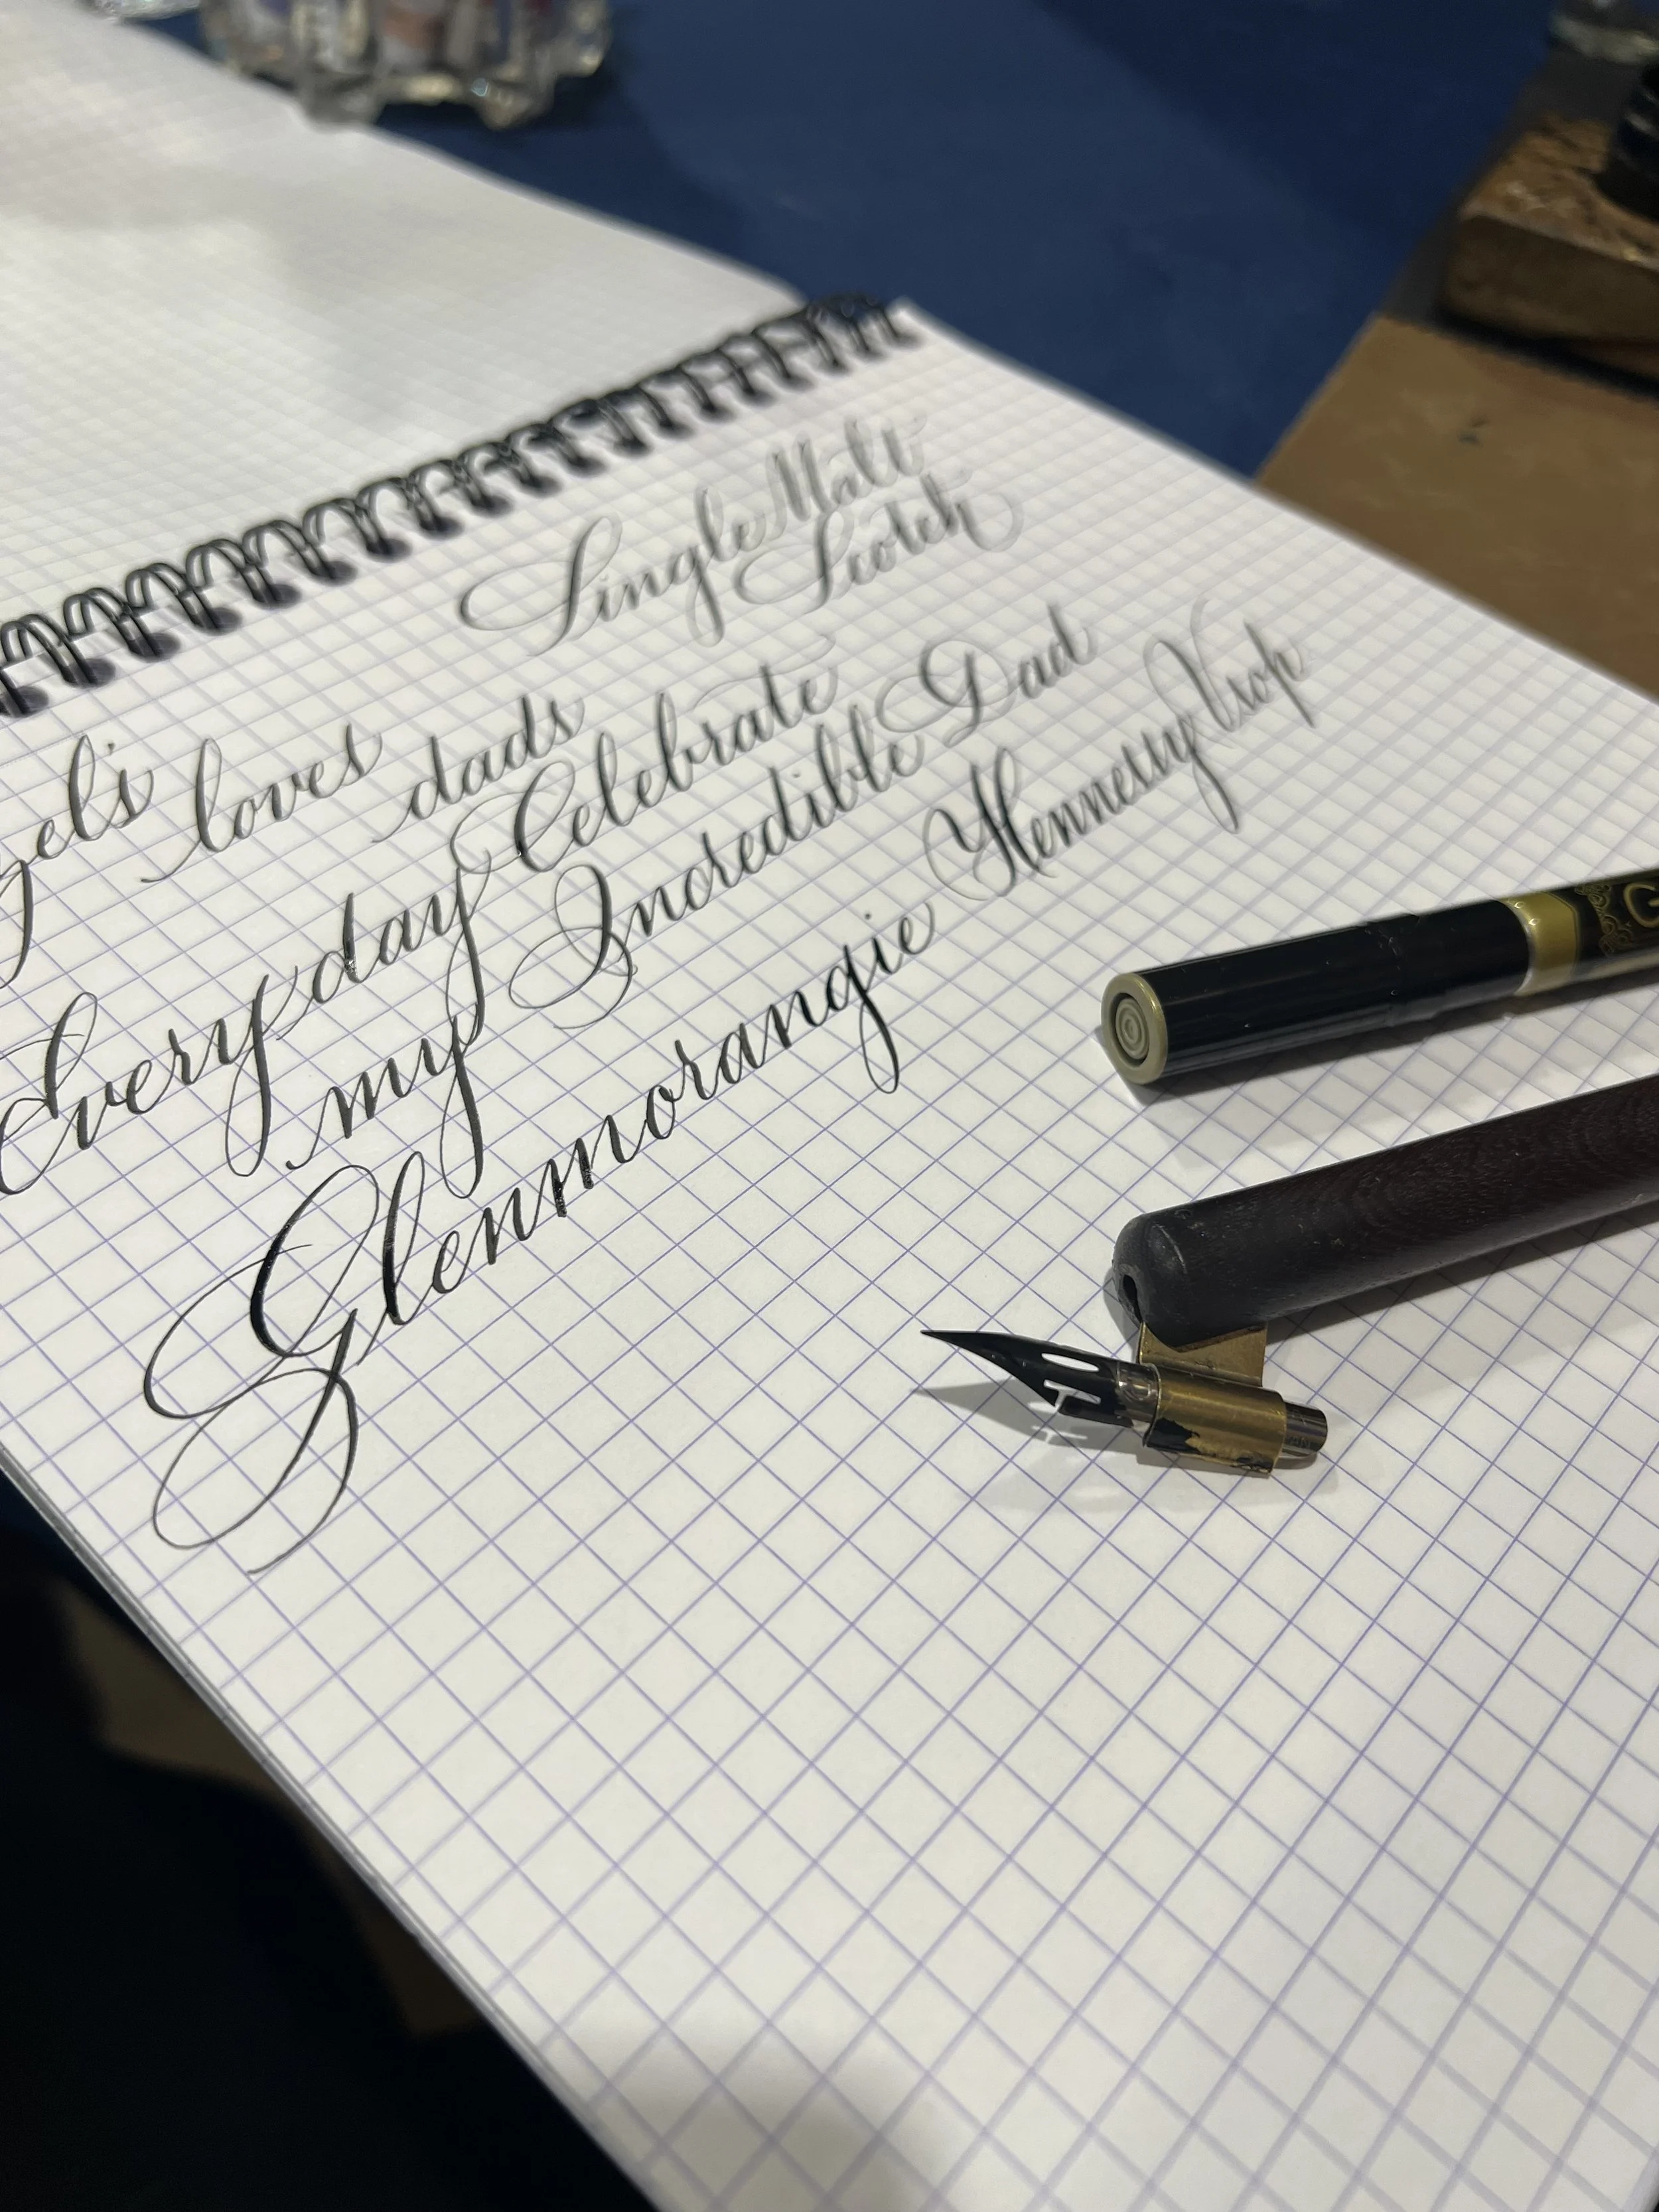 Single Malt
Scotch
loves dads
Everyday Celebrate
my Incredible Dad
Glenmorangie Hennessy Vsop